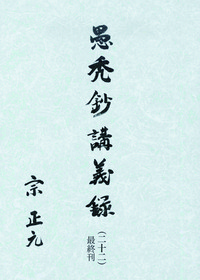 愚禿鈔講義録
(二十二)
最終刊
宗正元